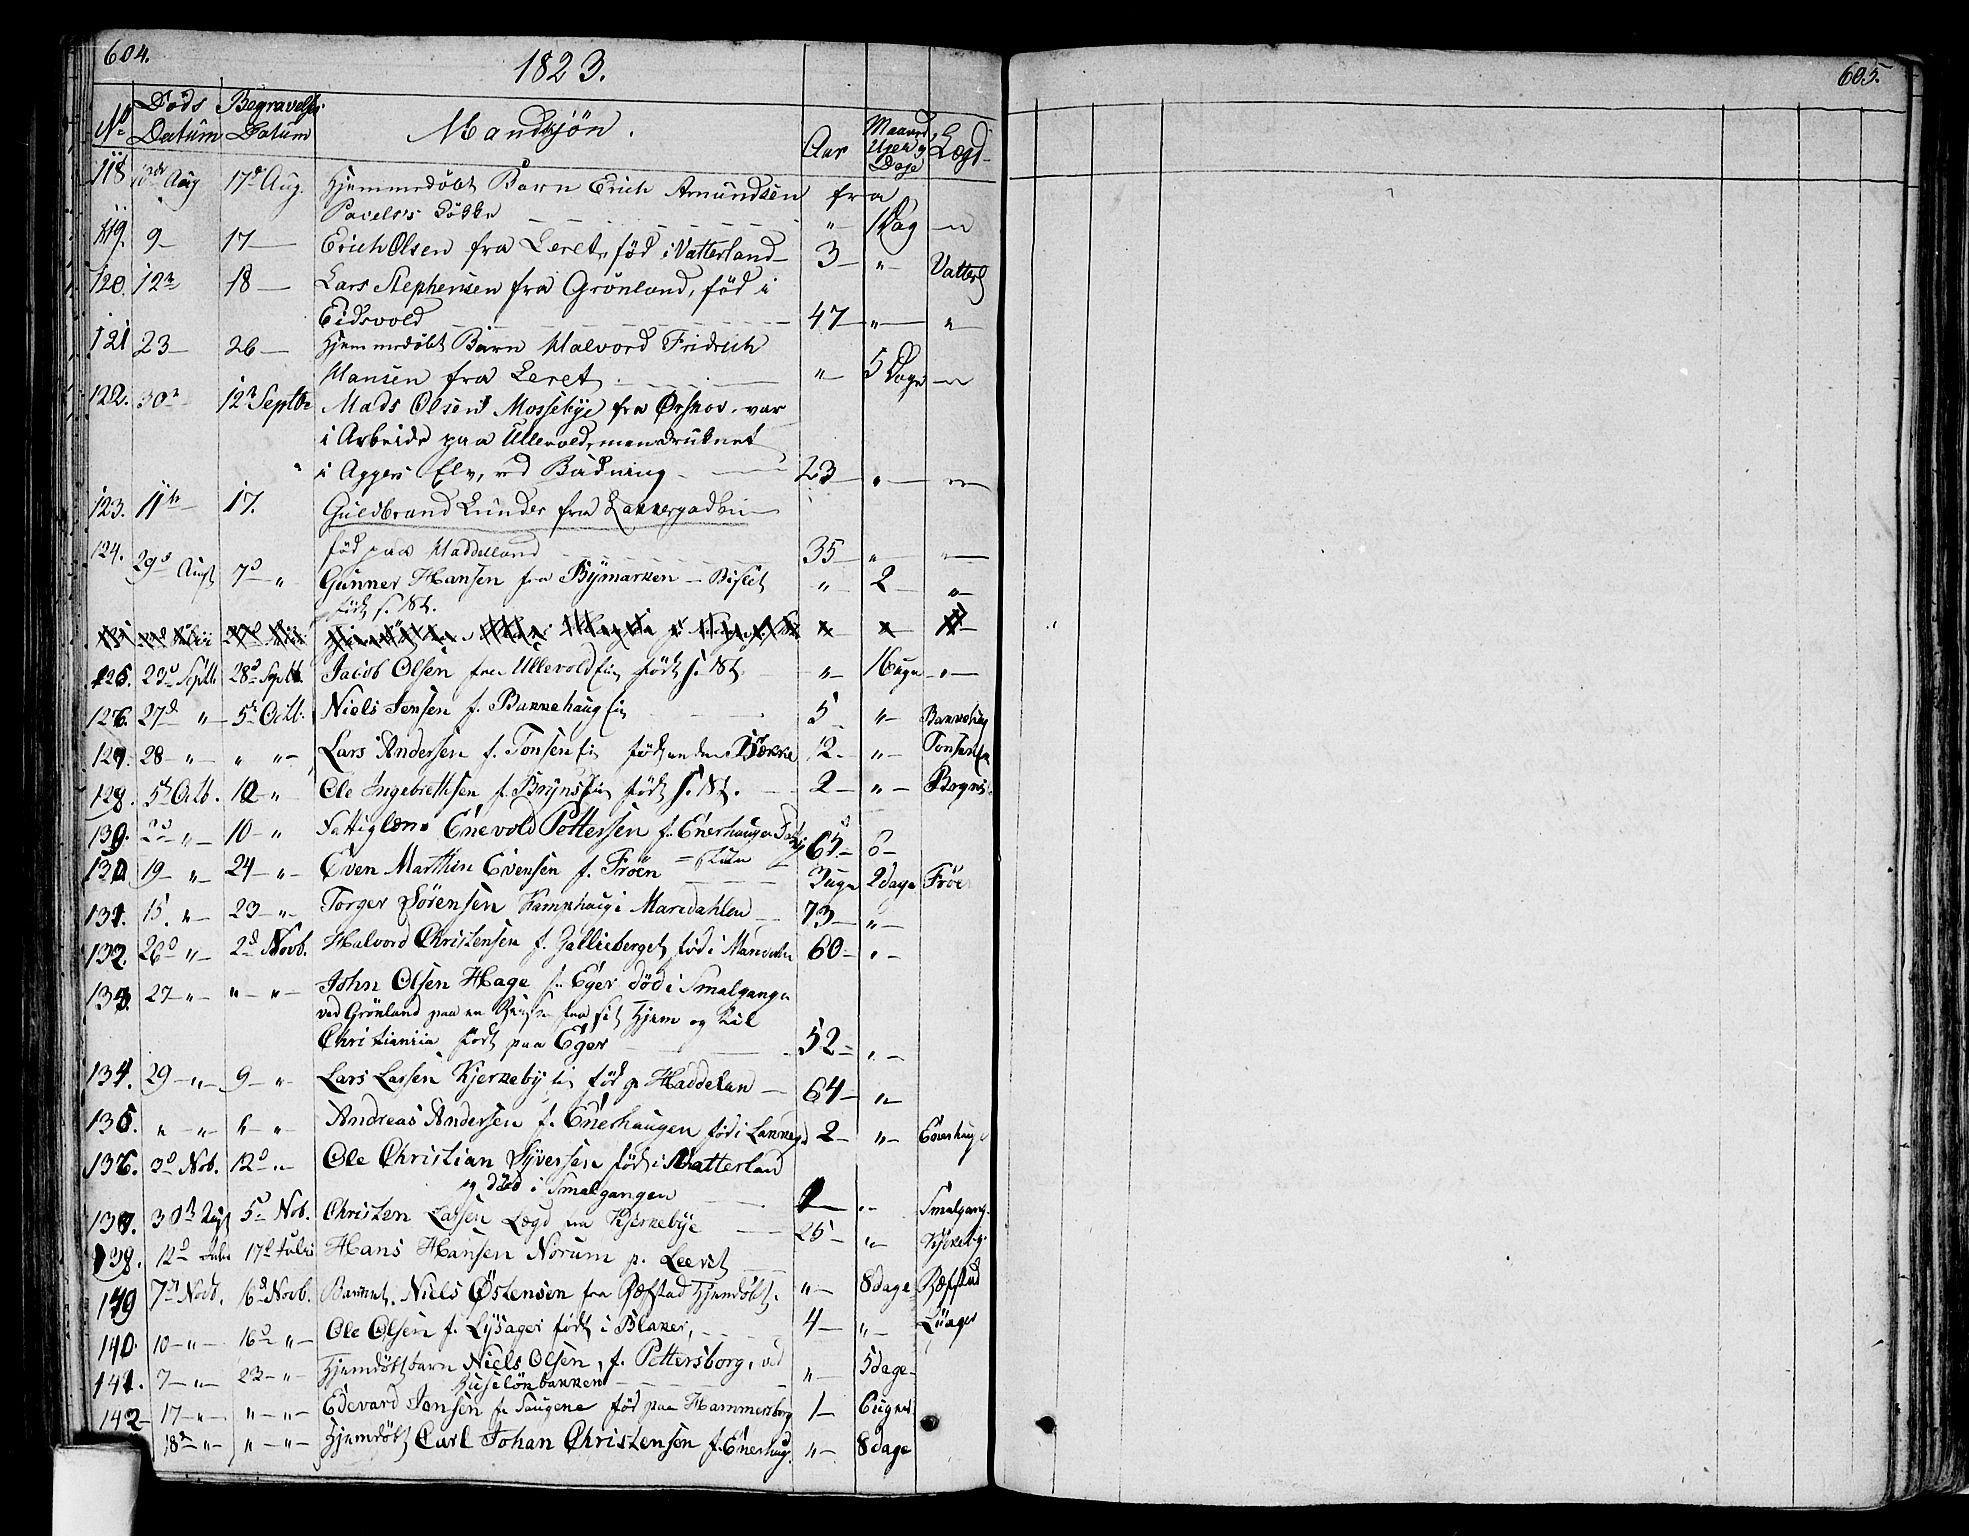 604.
1823.
605.
No Døds Datum Begravelses Datum Mandkjön. Aar Maaned Uger og Dage Lægd
118 Aug 17de Aug. Hjemmedøbt Barn Erich Amundsen fra
Løkke " 1 Dag "
119. 9 17 Erich Olsen fra Leret, fød i Vatterland 3 " Vatterl
120. 12te 18 Lars Stephensen fra Grønland, fød i
Eidsvold 47 " "
121 23 26 Hjemmedøbt Barn Halvord Fridrich
Hansen fra Leret " 5 Dage "
122. 30te 12te Septbr Mads Olsen Mossebye fra Ørskov. var
i Arbeide paa Ullevold, men druknet
i Aggers Elv, ved Badning 23 " "
123. 11te 17. Guldbrand Lunder fra Lakkergaden
fød paa Haddelland 35 " "
124. 29d Augst 7d " Gunner Hansen fra Bymarken Bislet " 2 "
født s. St.
125. 23d Septb. 28d Septb. Jacob Olsen fra Ullevold Ein født s. St. " 16 uger "
126. 27d " 5te Octb. Niels Jensen f. Bakkehaug Ein 5 " Bakkehaug
127. 28 " " " Lars Andersen f. Tonsen Ein født under Bække 12 " Tonsen
128. 5te Octb. 12 " Ole Ingebrethsen f. Bryns Ein født s. St. 2 " Bryns
129. 2d " 10 " Fattiglem Enevold Pettersen f. Enerhaugen 65
130 19 " 24 " Even Marthin Evensen f. Fröen 3 uger 2 dage Fröen
131. 15. " 23 " Torger Sörensen Kamphaug i Maridahlen 73 "
132. 26d " 2d Novb. Halvord Christensen f. fød i Maridalen 60 "
133. 27 " " " John Olsen Hage f. Eger död i Smalgangen
ved Grönland paa en Reise fra sit Hjem og til
Christiania født paa Eger 52 "
134. 29 " 9 " Lars Larsen Kjerkeby Ein fød p. Haddelan 64 "
135. " " 6 " Andreas Andersen f. Enerhaugen fød i Lakkeg. 2 " Enerhauge
136. 3d Nob. 12d " Ole Christian Syversen født i Vatterland
og död i Smalgangen 1 " Smalgang.
137. 30te Augst 5d Nob. Christen Larsen Lægd fra Kjerkebye 25 " Kjerkebye
138. 12d Julii 17d Julii Hans Hansen Norum p. Leeret
139 7de Novb. 16d Novb. Barnet. Niels Östensen fra Refstad Hjemdöbt. " 8 dage Refstad
140. 10 " 16d " Ole Olsen f. Lysager født i Blaker, 4 " Lüsager
141. 7 " 23 " Hjemdöbt barn Niels Olsen, f. Pettersborg, ved
Buselökbakken " 5 dage
142 17 " " " Edevard Jonsen fr Saugene fød paa Hammersborg 1 6 uger
18d " " " Hjemdöbt Carl Johan Christensen f. Enerhaug. " 8 dage